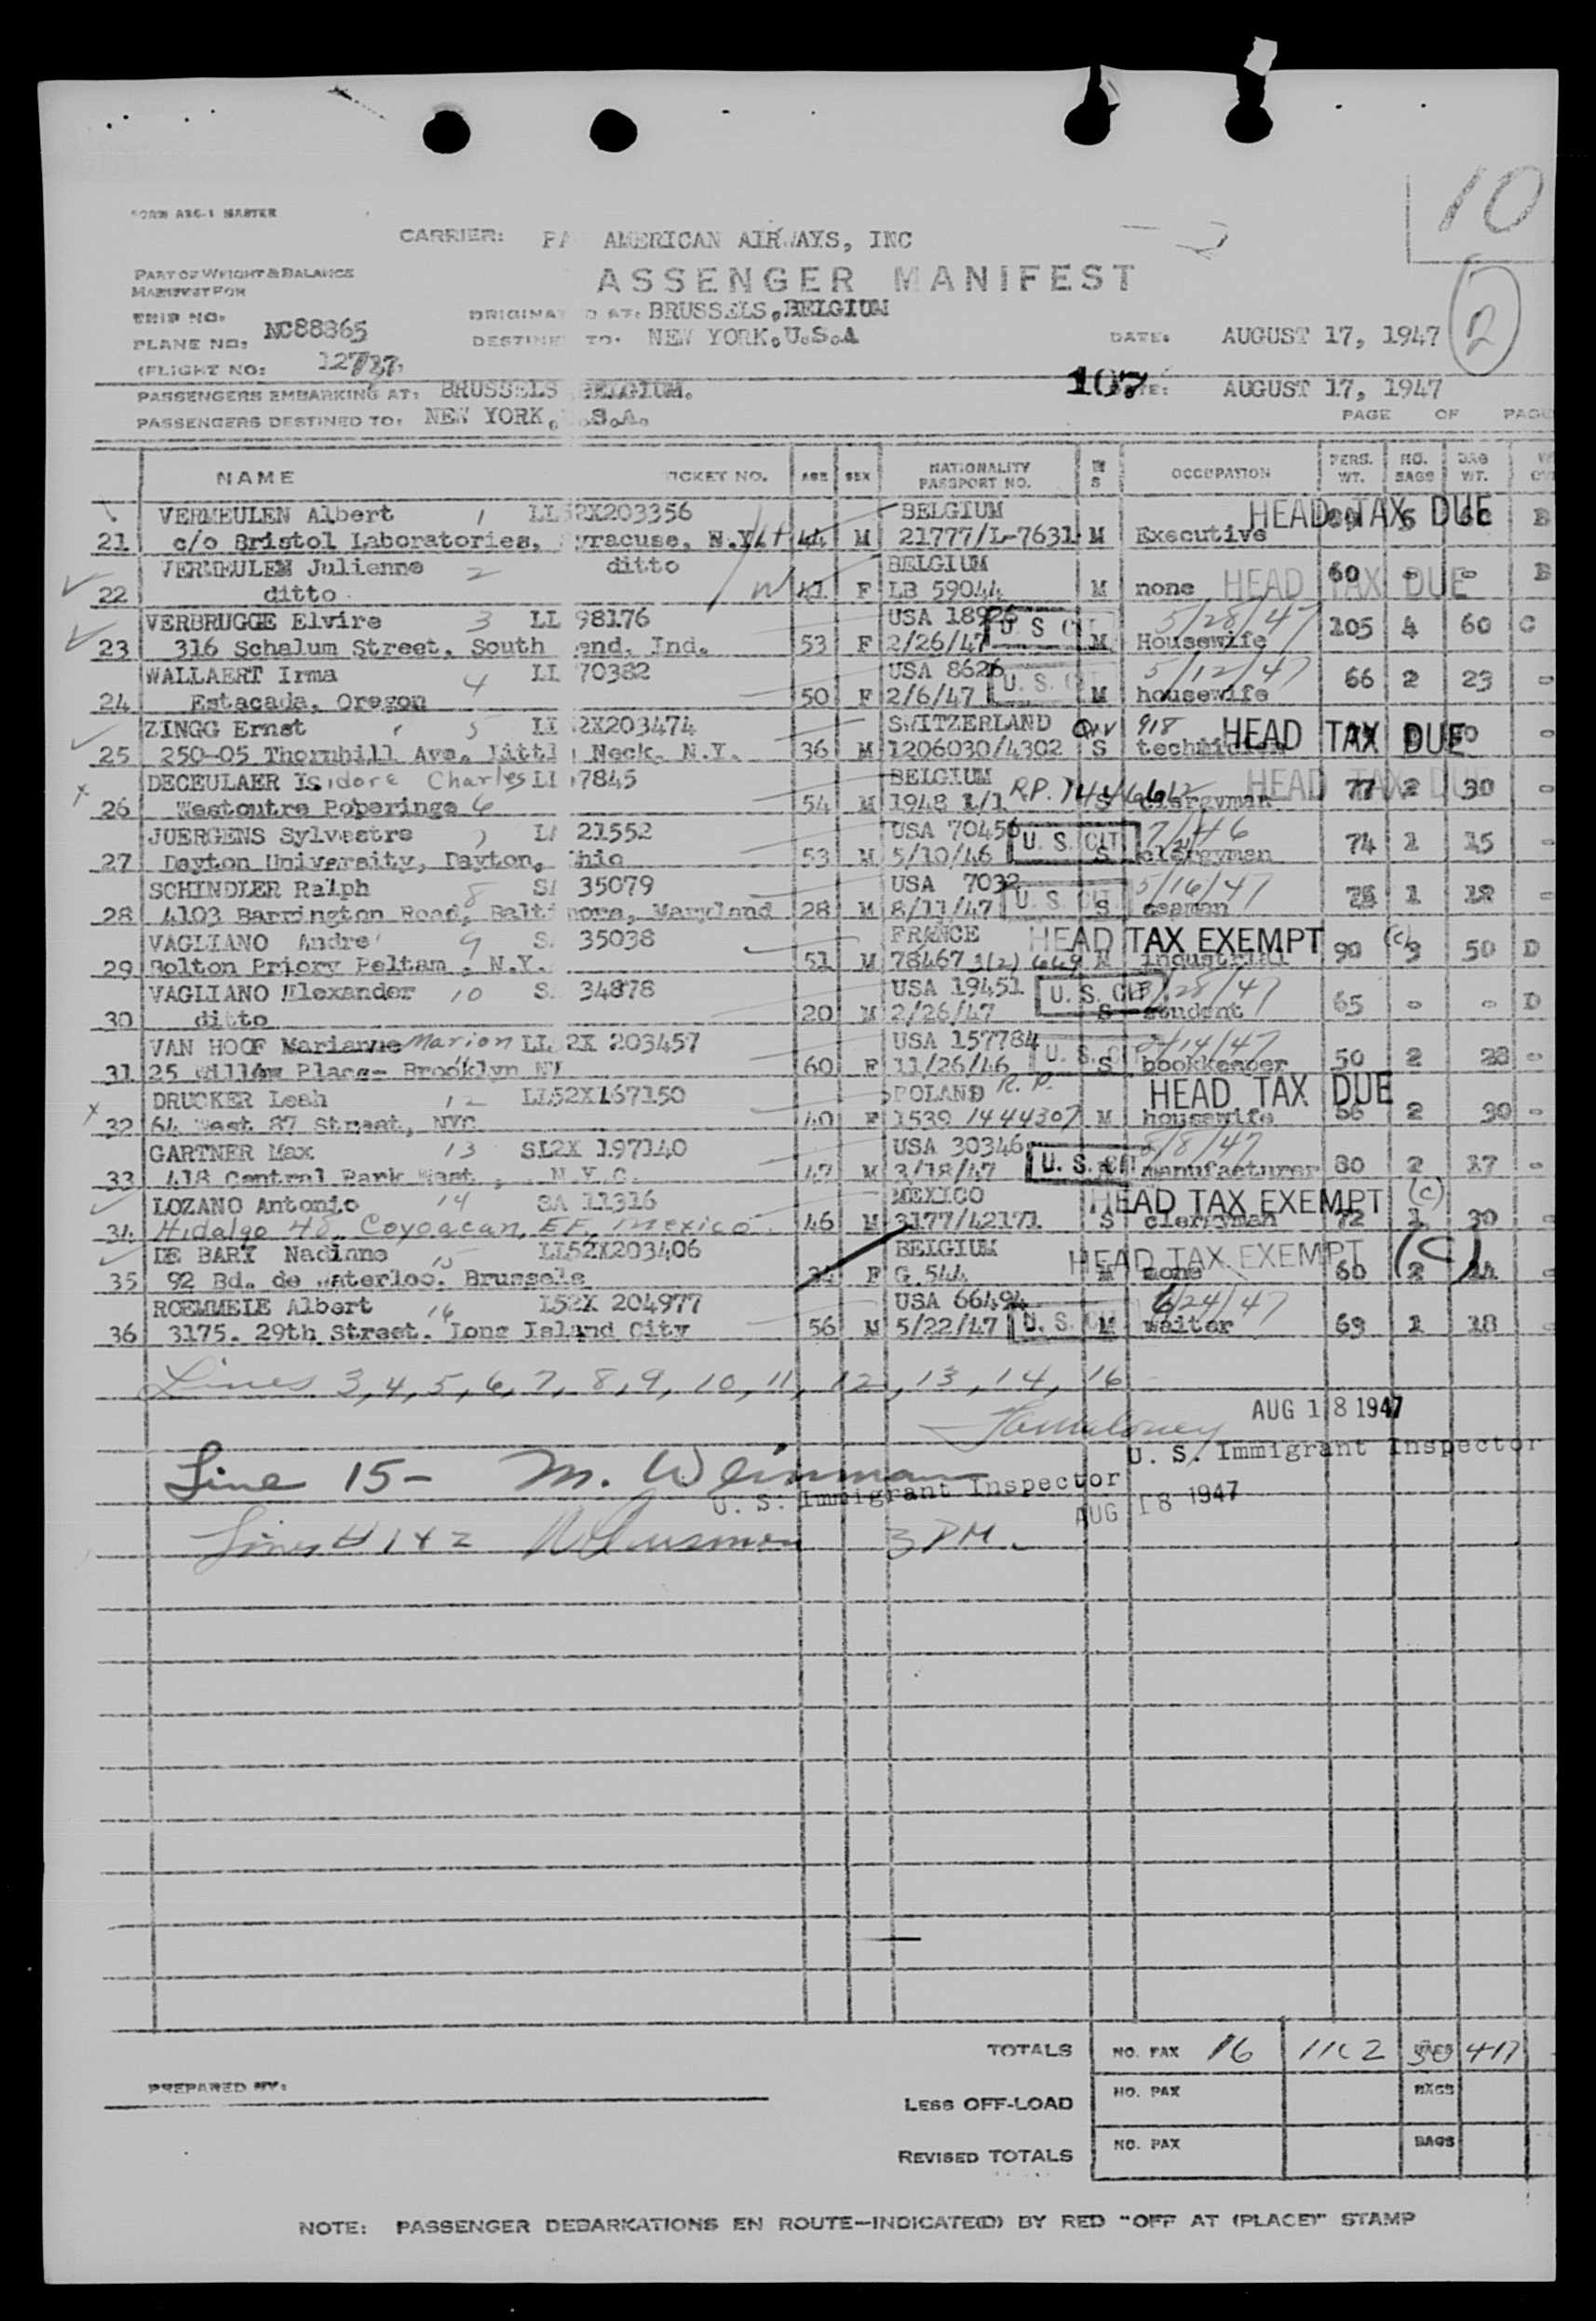 FORM ARC-1 MASTER
10
CARRIER: PA AMERICAN AIRWAYS, INC
PART OF WEIGHT & BALANCE
MANIFEST FOR
ASSENGER MANIFEST
2
TRIP NO.
ORIGINA D AT: BRUSSELS, BELGIUM
PLANE NO: NC88865
DESTINE TO: NEW YORK, U.S.A
DATE: AUGUST 17, 1947
(FLIGHT NO:
107
PASSENGERS EMBARKING AT: BRUSSELS BELGIUM.
AUGUST 17, 1947
PASSENGERS DESTINED TO: NEW YORK, .S.A.
PAGE OF PAGE
NAME ICKET NO. AGE SEX NATIONALITY PASSPORT NO. M S OCCUPATION PERS. WT. NO. BAGS BAG WT.
VERMEULEN Albert 1 LL52X203356 BELGIUM HEAD TAX DUE
21 c/o Bristol Laboratories, yracuse, N.Y. 44 M 21777/L-7631 M Executive B
VERMEULEN Julienne 2 ditto BELGIUM 60 - - B
22 ditto 41 F LB 59044 M none HEAD TAX DUE
VERBRUGGE Elvire 3 LL 98176 USA 18926 U S CIT 5/28/47 105 4 60 C
23 316 Schalum Street, South end, Ind. 53 F 2/26/47 M Housewife
WALLAERT Irma 4 LL 70382 USA 8626 U. S. CIT 5/12/47 66 2 23 -
24 Estacada, Oregon 50 F 2/6/47 M housewife
ZINGG Ernst 5 LL 2X203474 SWITZERLAND 918 HEAD TAX DUE
25 250-05 Thornhill Ave, Littl Neck, N.Y. 36 M 1206030/4302 S technician
DECEULAER Isidore Charles LL 7845 BELGIUM R.P. HEAD TAX DUE 77 2 30 -
26 Westoutre Poperinge 6 54 M 1948 1/1 S clergyman
JUERGENS Sylvestre 7 21552 USA 70456 U. S. CIT 74 1 15 -
27 Dayton University, Dayton, hio 53 M 5/10/46 S clergyman
SCHINDLER Ralph 8 35079 USA 7032 U. S. CIT. 5/16/47 1 -
28 4103 Barrington Road, Balti more, Maryland 28 M 8/11/47 S seaman
VAGLIANO Andre 9 35038 FRANCE HEAD TAX EXEMPT (c) 90 3 50 D
29 Bolton Priory Peltam, N.Y. 51 M 78467 M industrial
VAGLIANO Alexander 10 34878 USA 19451 U. S. CIT 65 - - D
30 ditto 20 M 2/26/47 S student
VAN HOOF Marianne Marion LL 2X 203457 USA 157784 U. S. CIT 50 2 28 -
31 25 Willow Place- Brooklyn NY 11 60 F 11/26/46 S bookkeeper
DRUCKER Leah 12 LL52X167150 POLAND R.P. HEAD TAX DUE 2 30 -
32 64 West 87 Street, NYC 40 F 1539 1444307 M housewife
GARTNER Max 13 SL2X 197140 USA 30346 U. S. CIT 8/8/47 80 2 17 -
33 418 Central Park West, N.Y.C. 47 M 3/18/47 manufacturer
LOZANO Antonio 14 SA 11316 MEXICO HEAD TAX EXEMPT (c) 72 1 30 -
34 Hidalgo 48, Coyoacan, E.F. Mexico. 46 M 3177/42171 S clergyman
DE BARY Nadinne 15 LL52X203406 BELGIUM HEAD TAX EXEMPT (C) 60 2 -
35 92 Bd. de Waterloo. Brussels F G.544 M none
ROEMMELE Albert 16 L52X 204977 USA 66494 U. S. CIT 6/24/47 69 1 18 -
36 3175. 29th Street. Long Island City 56 M 5/22/47 M waiter
Lines 3,4,5,6,7,8,9,10,11,12,13,14,16
AUG 18 1947
U. S. Immigrant Inspector
Line 15- M. Weinman
U. S. Immigrant Inspector
AUG 18 1947
Lines # 1 + 2 3 PM.
TOTALS NO. PAX 16 1102 BAGS 30 417
PREPARED BY:
LESS OFF-LOAD NO. PAX BAGS
REVISED TOTALS NO. PAX BAGS
NOTE: PASSENGER DEBARKATIONS EN ROUTE—INDICATE(D) BY RED "OFF AT (PLACE)" STAMP